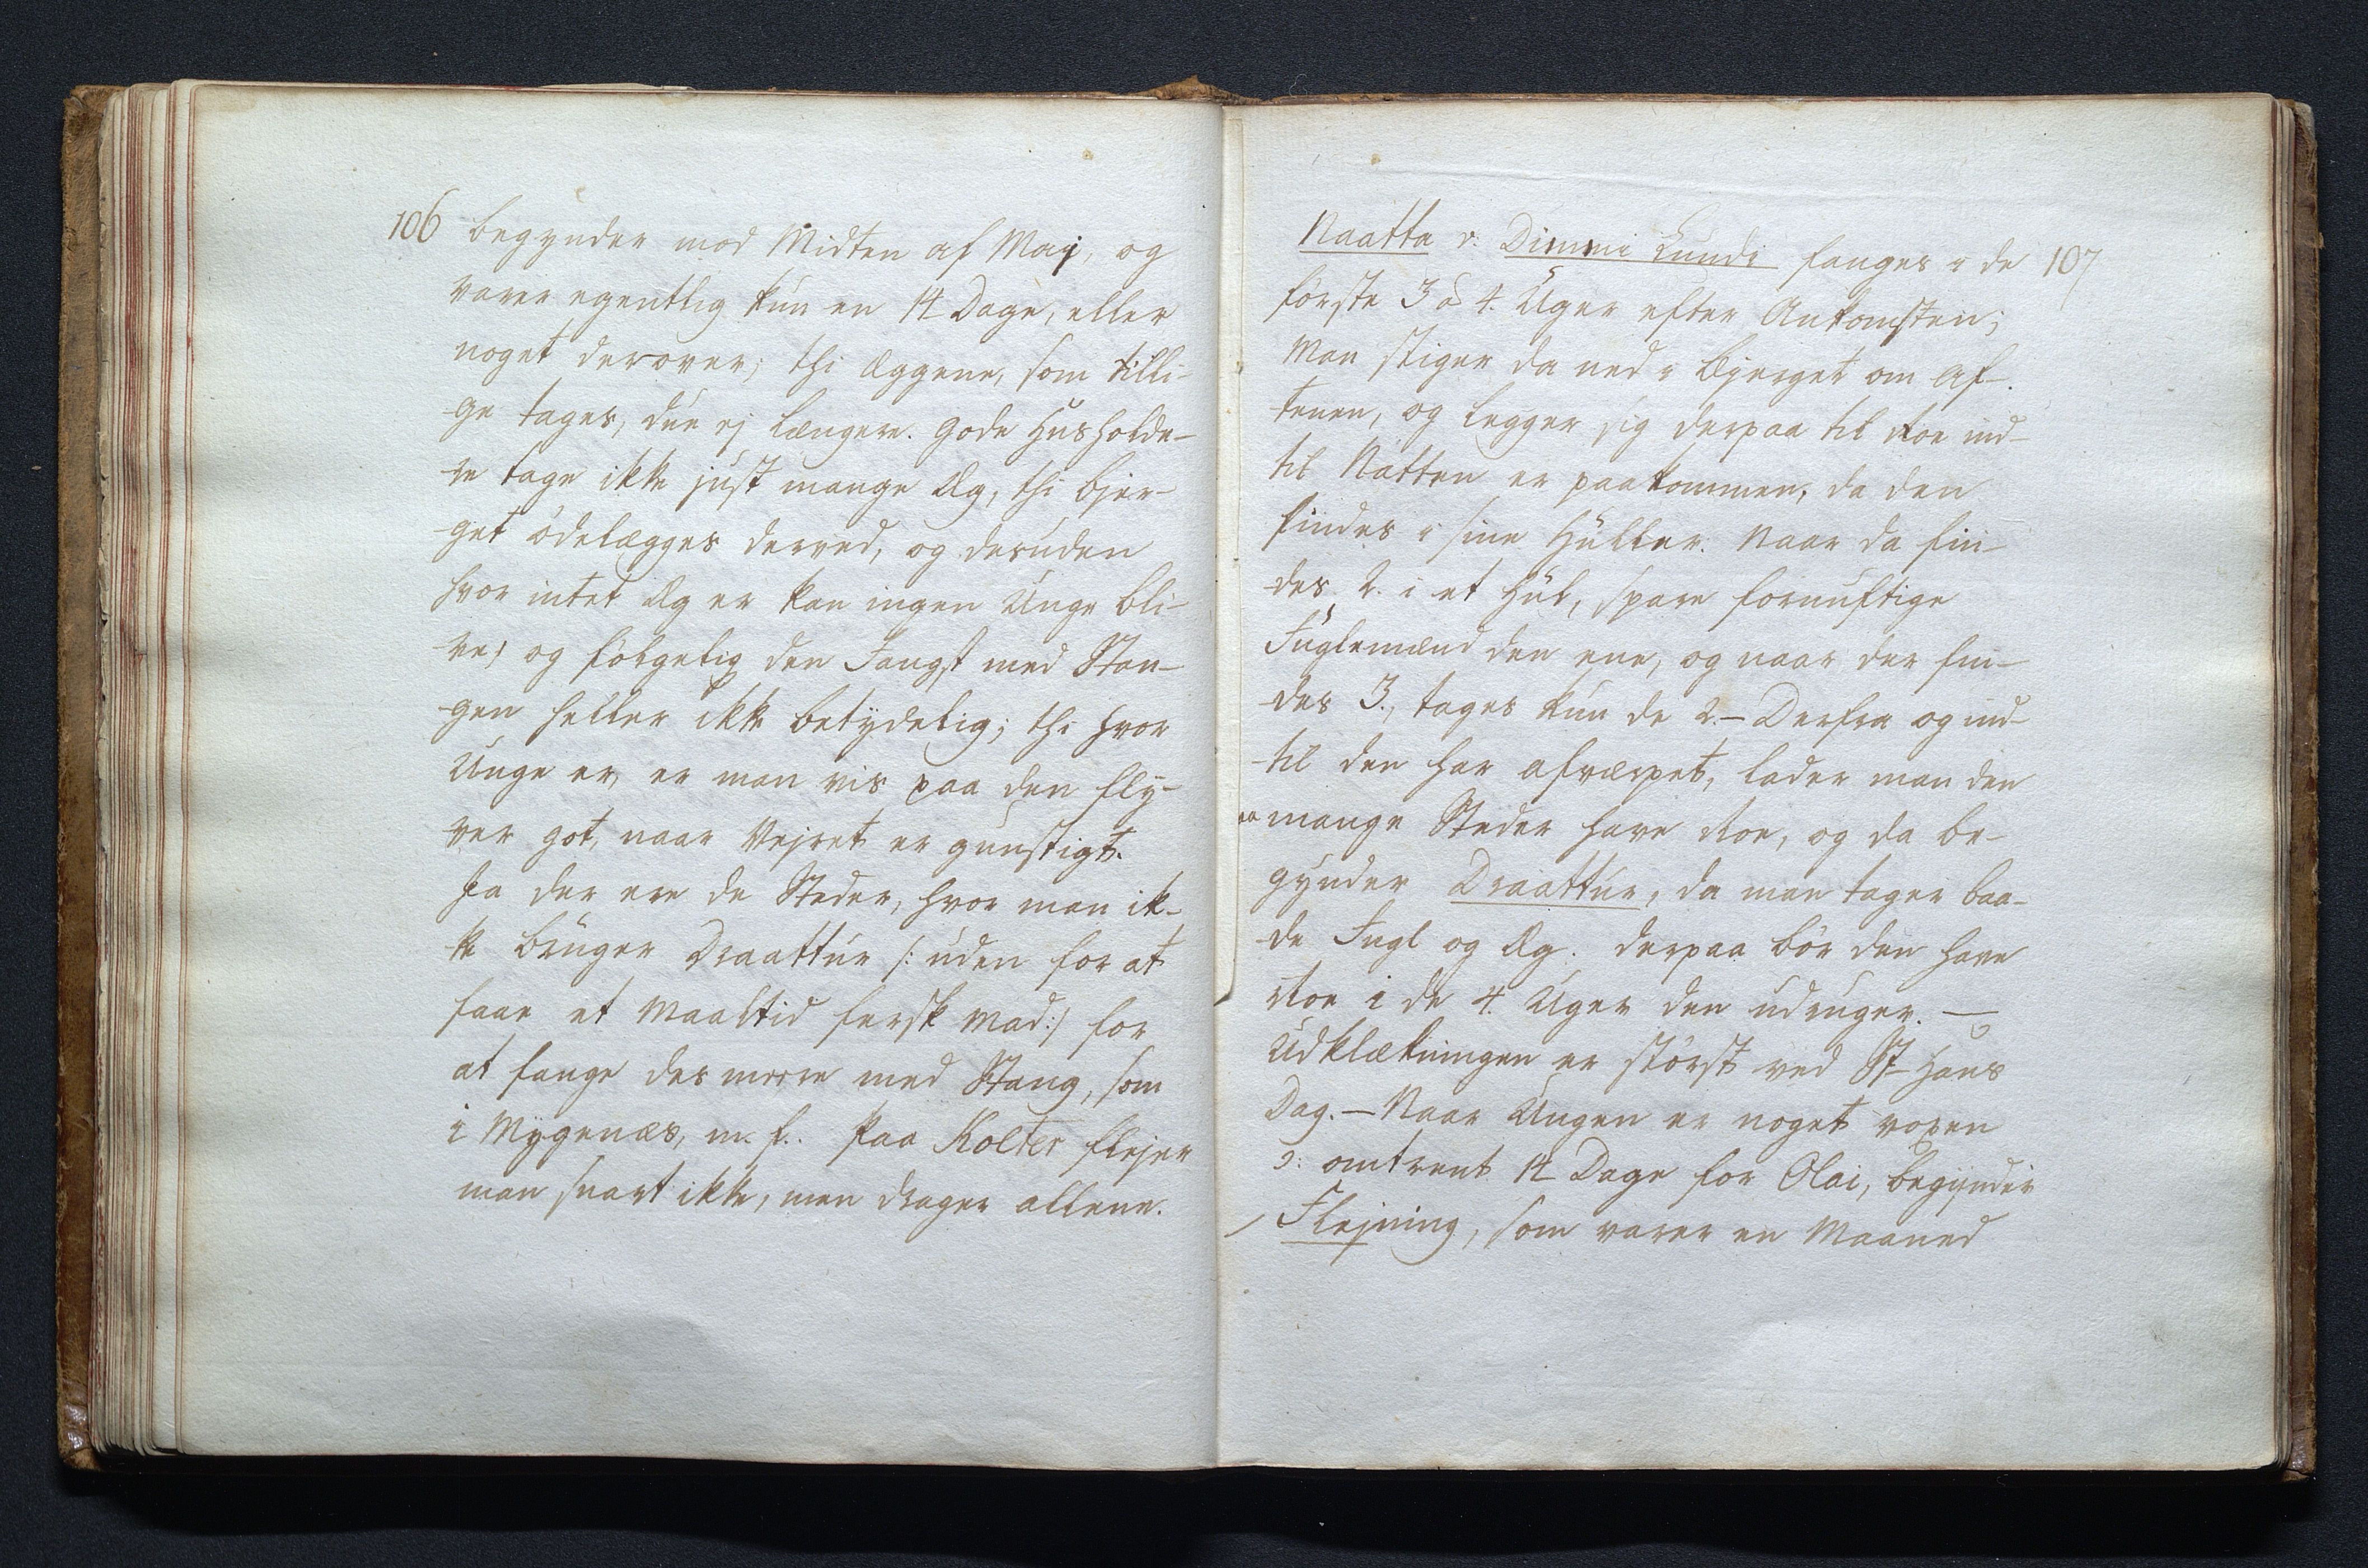 106
begynder mod Midten af Maj, og
varer egentlig kun en 14 Dage, eller
noget derover; thi Æggene, som tilli-
-ge tages, due ej længere. Gode Husholde-
-re tage ikke just mange Æg, thi bjer-
-get ödelægges derved, og desuden
hvor intet Æg er kan ingen Unge bli-
-ve, og fölgelig den Fangst med Stan-
-gen heller ikke betydelig; thi hvor
Unge er, er man vis paa den fly-
ver got, naar Vejret er gunstigt.
Ja der ere de Steder, hvor man ik-
-ke bruger Draattur /: uden for at
faae et Maaltid fersk Mad :/ for
at fange des meere med Stang, som
i Mygenæs, m. f. Paa Kolter flejer
man snart ikke, men drager allene.
107
Naatta v. Dimmi Lundi fanges i de
förste 3 à 4. Uger efter Ankomsten;
Man stiger da ned i Bjerget om Af-
tenen, og legger sig derpaa til Roe ind-
til Natten er paakommen, da den
findes i sine Huller. Naar da fin-
-des 2. i et Hul, spare fornuftige
Fuglemænd den ene, og naar der fin-
-des 3., tages kun de 2. – Derfra og ind-
-til den har afværpet, lader man den
paa mange Steder have Roe, og da be-
gynder Draattur, da man tager baa-
-de Fugl og Æg. derpaa bör den have
Roe i de 4. Uger den udruger. —
Udklækningen er störst ved St Hans
Dag. – Naar Ungen er noget voxen
ɔ: omtrent 14 Dage for Olai, begynder
Flejning, som varer en Maaned